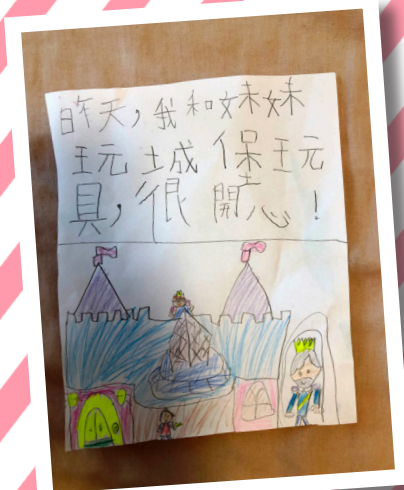 昨天，我和妹妹
玩城保玩
具，很開心！